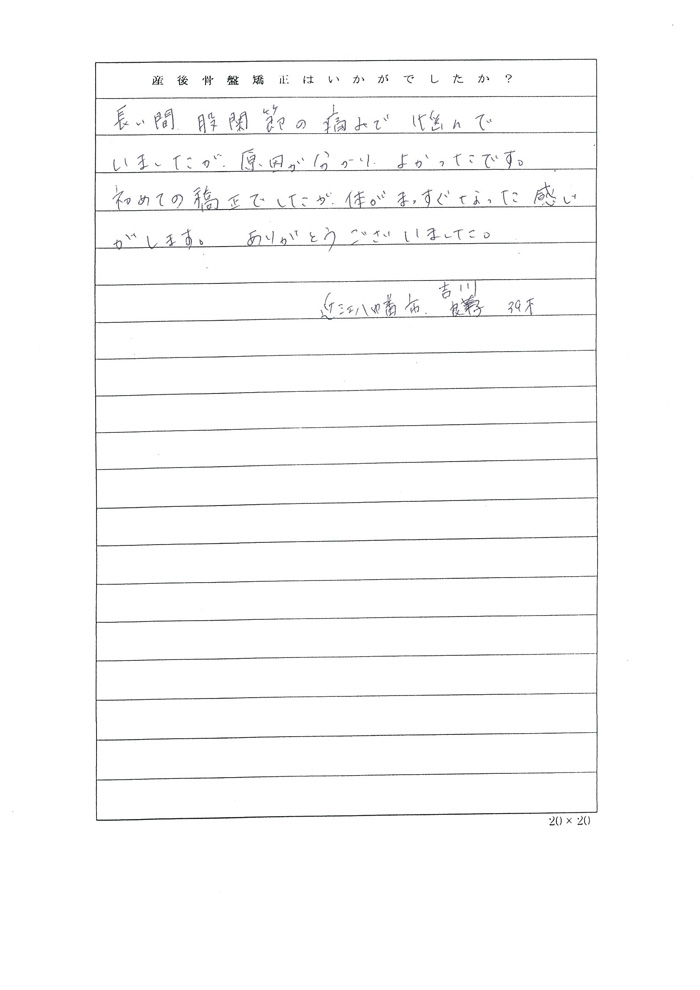 産後骨盤矯正はいかがでしたか？
長い間、股関節の痛みで悩んで
いましたが、原因が分かり、よかったです。
初めての矯正でしたが、体がまっすぐなった感じ
がします。 ありがとうございました。
吉川
近江八幡市、 39才
20×20